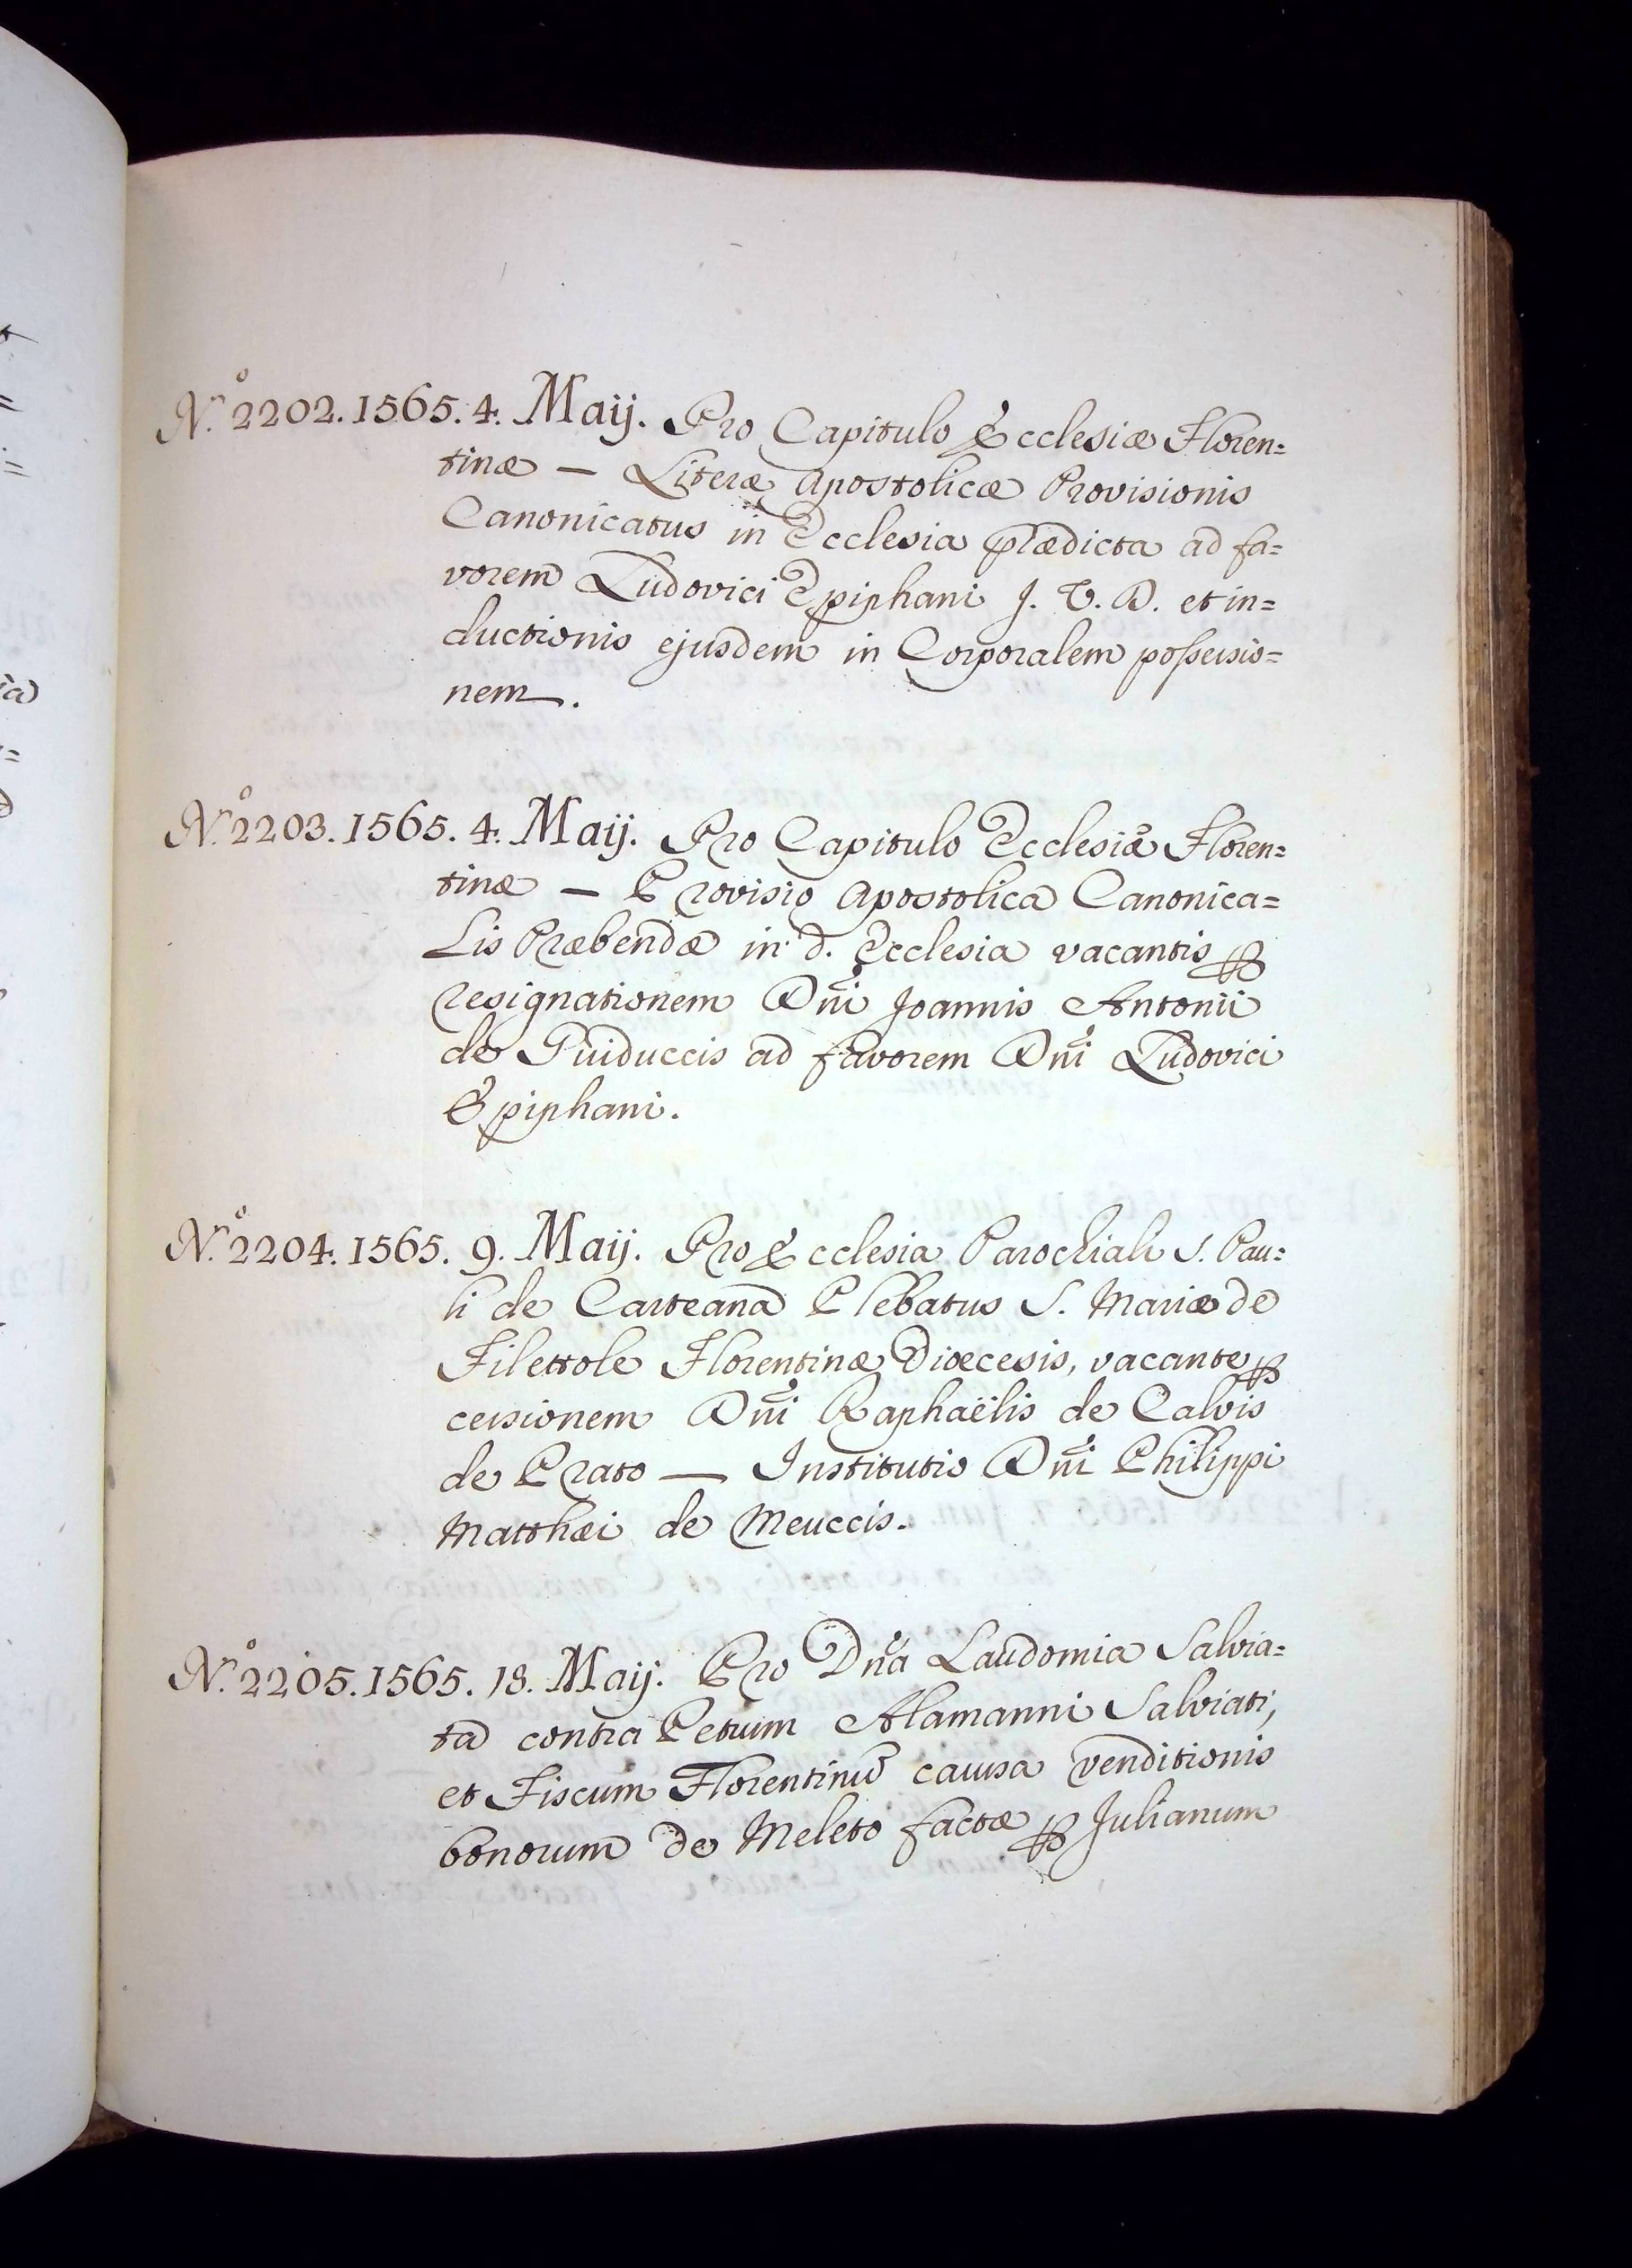 N.º 2202. 1565. 4. Maij. Pro Capitulo Ecclesiæ Floren=
tinæ — Literæ Apostolicæ Provisionis
Canonicatus in Ecclesia prædicta ad fa=
vorem Ludovici Epiphani J. V. D. et in=
ductionis ejusdem in Corporalem possessio=
nem.
N.º 2203. 1565. 4. Maij. Pro Capitulo Ecclesiæ Floren=
tinæ — Provisio Apostolica Canonica=
Lis Præbendæ in d. Ecclesia vacantis ꝑ
resignationem Dñi Joannis Antonii
de Guiduccis ad favorem Dñi Ludovici
Epiphani.
N.º 2204. 1565. 9. Maij. Pro Ecclesia Parochiali S. Pau=
li de Carteana Plebatus S. Mariæ de
Filettole Florentinæ Diœcesis, vacante ꝑ
cessionem Dñi Raphaëlis de Calvis
de Prato — Institutio Dñi Philippi
Matthæi de Meuccis.
N.º 2205. 1565. 18. Maij. Pro Dña Laudomia Salvia=
ta contra Petrum Alamanni Salviati,
et Fiscum Florentinũ causa venditionis
bonorum de Meleto factæ ꝑ Julianum